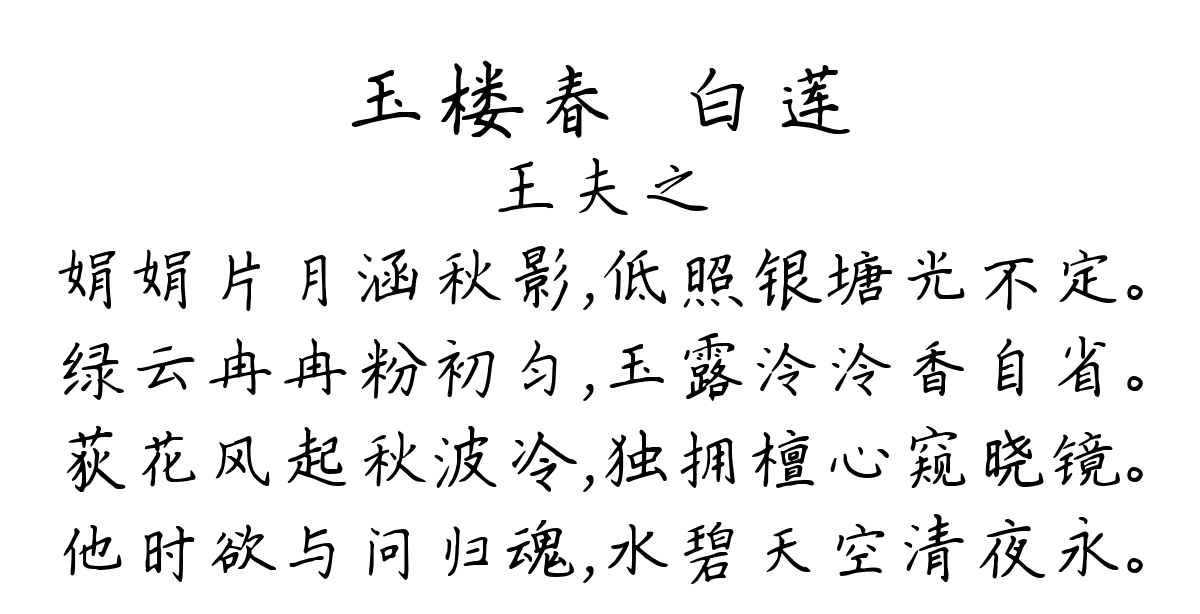 玉楼春 白莲
王夫之
娟娟片月涵秋影,低照银塘光不定。
绿云冉冉粉初匀,玉露泠泠香自省。
荻花风起秋波冷,独拥檀心窥晓镜。
他时欲与问归魂,水碧天空清夜永。